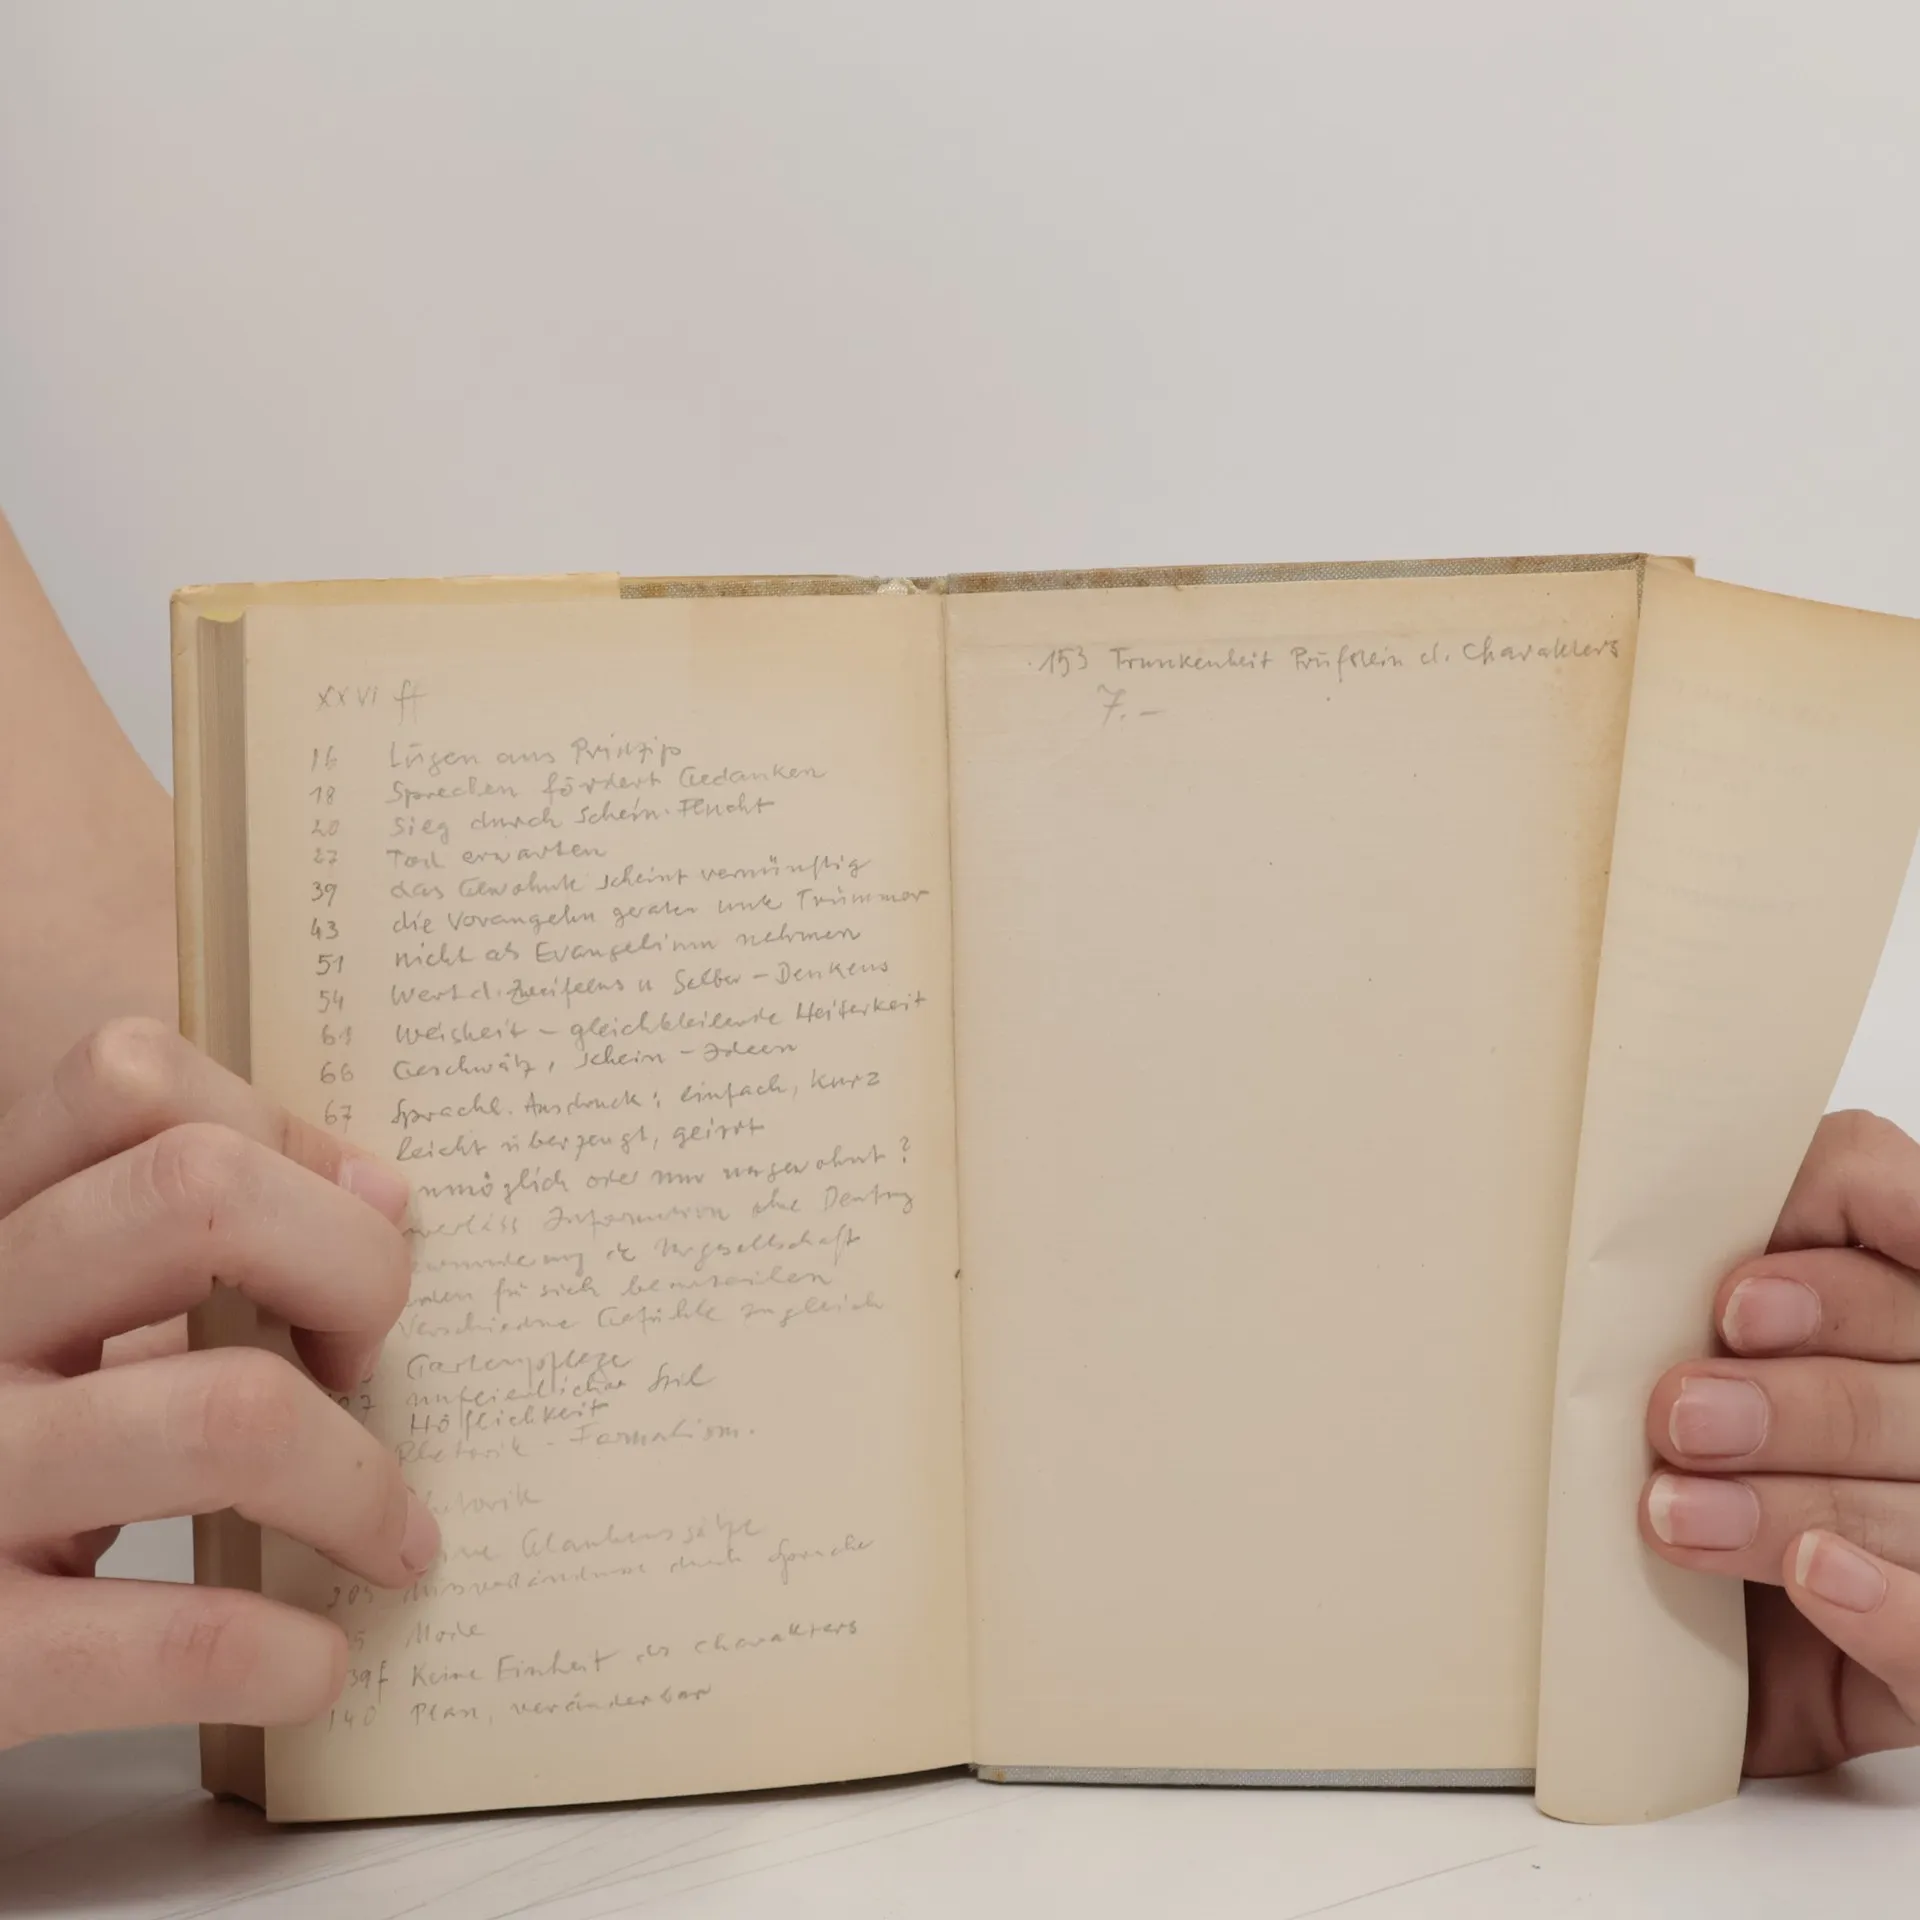 XXVI ff
16 Lügen aus Prinzip
18 Sprechen fördert Gedanken
20 Sieg durch Schein-Flucht
27 Tod erwarten
39 das Gewohnte scheint vernünftig
43 die Vorangehn geraten unter Trümmer
51 nicht als Evangelium nehmen
54 Wert d. Zweifelns u Selber-Denkens
61 Weisheit – gleichbleibende Heiterkeit
66 Geschwätz, Schein-Ideen
67 Sprachl. Ausdruck: einfach, kurz
leicht überzeugt, geirrt
unmöglich oder nur ungewohnt?
Information ohne Deutung
Urgesellschaft
für sich beurteilen
Verschiedne Gefühle zugleich
Gartenpflege
Stil
Höflichkeit
Rhetorik - Formalism.
Rhetorik
Glaubenssätze
Missverständnisse durch Sprache
Mode
39f Keine Einheit des Charakters
140 Plan, veränderbar
153 Trunkenheit Prüfstein d. Charakters
7.–